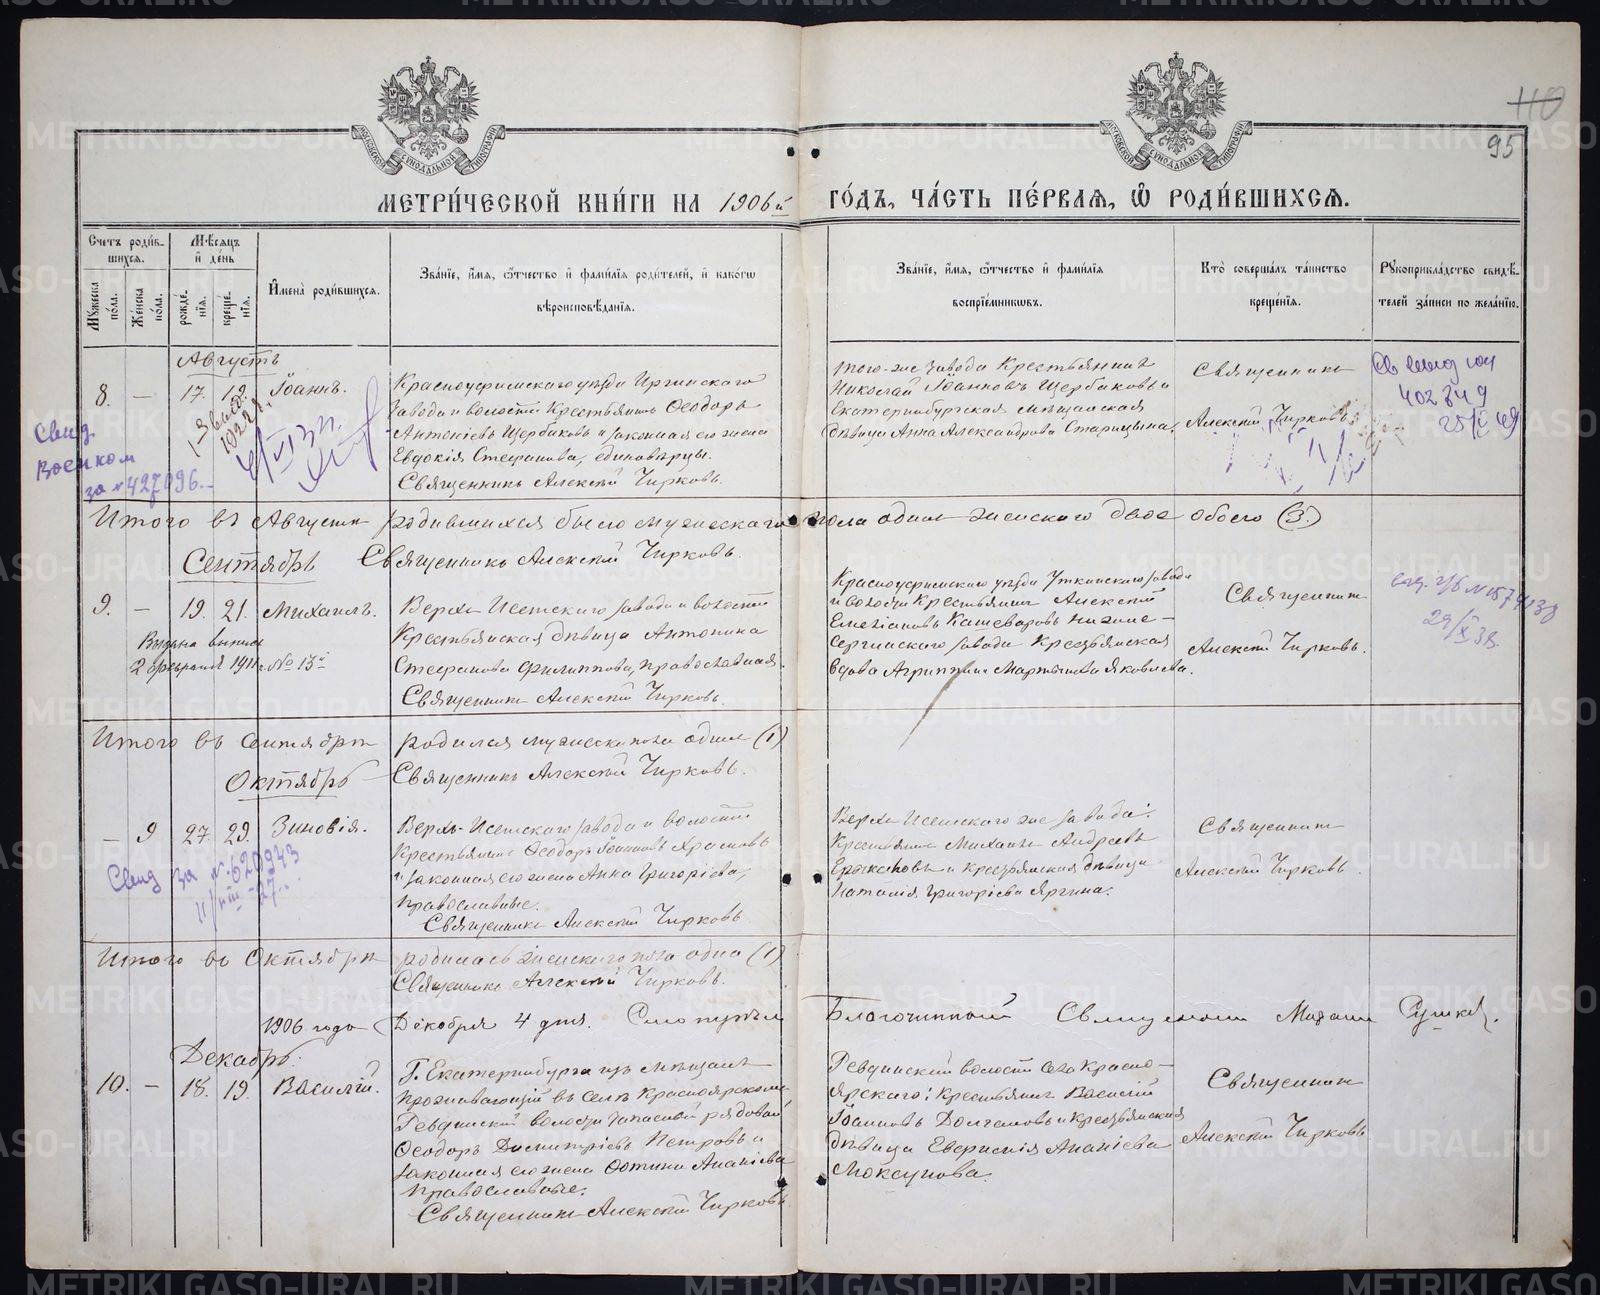 110
95
МОСКОВСКОЙ СѴНОДАЛЬНОЙ ТИПОГРАФІИ
МОСКОВСКОЙ СѴНОДАЛЬНОЙ ТИПОГРАФІИ
МЕТРИ́ЧЕСКОЙ КНИ́ГИ НА 1906й ГО́ДЪ, ЧА́СТЬ ПЕ́РВАѦ, Ѡ҆ РОДИ́ВШИХСѦ.
Счетъ роди́в-
шихсѧ.
Мꙋ́жеска по́ла.
Же́нска по́ла.
Мѣ́сѧцъ
и҆ де́нь
рожде́-
нїѧ.
креще́-
нїѧ.
И҆мена̀ роди́вшихсѧ.
Зва́нїе, и҆́мѧ, ѻ҆́тчество и҆ фами́лїѧ роди́телей, и҆ како́гѡ
вѣроисповѣ́данїѧ.
Зва́нїе, и҆́мѧ, ѻ҆́тчество и҆ фами́лїѧ
воспрїе́мникѡвъ.
Кто̀ соверша́лъ та́инство
креще́нїѧ.
Рꙋкоприкла́дство свидѣ́-
телей за́писи по жела́нїю.
Августъ
8. — 17. 19. Іоаннъ.
Красноуфимскаго уѣзда Иргинскаго
завода и волости Крестьянинъ Ѳеодоръ
Антоніевъ Щербаковъ и законная его жена
Евдокія Стефанова, единовѣрцы.
Священникъ Алексій Чирковъ.
того-же завода Крестьянинъ
Николай Іоанновъ Щербаковъ и
Екатеринбургская мѣщанская
дѣвица Анна Александрова Старицына.
Священникъ
Алексій Чирковъ
402849
25/X 49
Свид.
Военком
за № 427096.
Итого въ Августѣ родившихся было мужескаго пола одинъ женскаго двое обоего (3.)
Сентябрь Священникъ Алексій Чирковъ.
9. — 19. 21. Михаилъ.
Выдана выпись
2 февраля 1911 г. № 13
Верхъ-Исетскаго завода и волости
Крестьянская дѣвица Антонина
Стефанова Филиппова, православная.
Священникъ Алексій Чирковъ.
Красноуфимскаго уѣзда Уткинскаго завода
и волости Крестьянинъ Алексій
Емеліановъ Кашеваровъ и нижне-
сергинскаго завода Крестьянская
вдова Агриппина Мартынова Яковлева.
Священникъ
Алексій Чирковъ.
29/X 38.
Итого въ Сентябрѣ родился мужеска пола одинъ (1)
Октябрь Священникъ Алексій Чирковъ.
— 9 27. 29. Зиновія.
Свид за №. 620943
Верхъ-Исетскаго завода и волости
Крестьянинъ Ѳеодоръ Іоанновъ Храмовъ
и законная его жена Анна Григоріева,
православные.
Священникъ Алексій Чирковъ
Верхъ-Исетскаго же завода:
Крестьянинъ Михаилъ Андреевъ
и Крестьянская дѣвица
Наталія Григоріева Яргина.
Священникъ
Алексій Чирковъ.
Итого въ Октябрѣ родилась женскаго пола одна (1)
Священникъ Алексій Чирковъ.
1906 года Декабря 4 дня. Смотрѣлъ Благочинный Священникъ
Декабрь.
10. — 18. 19. Василій.
Г. Екатеринбурга изъ мѣщанъ
проживающій въ селѣ Красноярскомъ
Ревдинской волости запасный рядовой
Ѳеодоръ Димитріевъ Петровъ и
законная его жена Фотина Ананіева
православные.
Священникъ Алексій Чирковъ
Ревдинской волости села Красно-
ярскаго: Крестьянинъ Василій
Іоанновъ Долгановъ и Крестьянская
дѣвица Евфимія Ананіева
Моксунова.
Священникъ
Алексій Чирковъ
METRIKI.GASO-URAL.RU